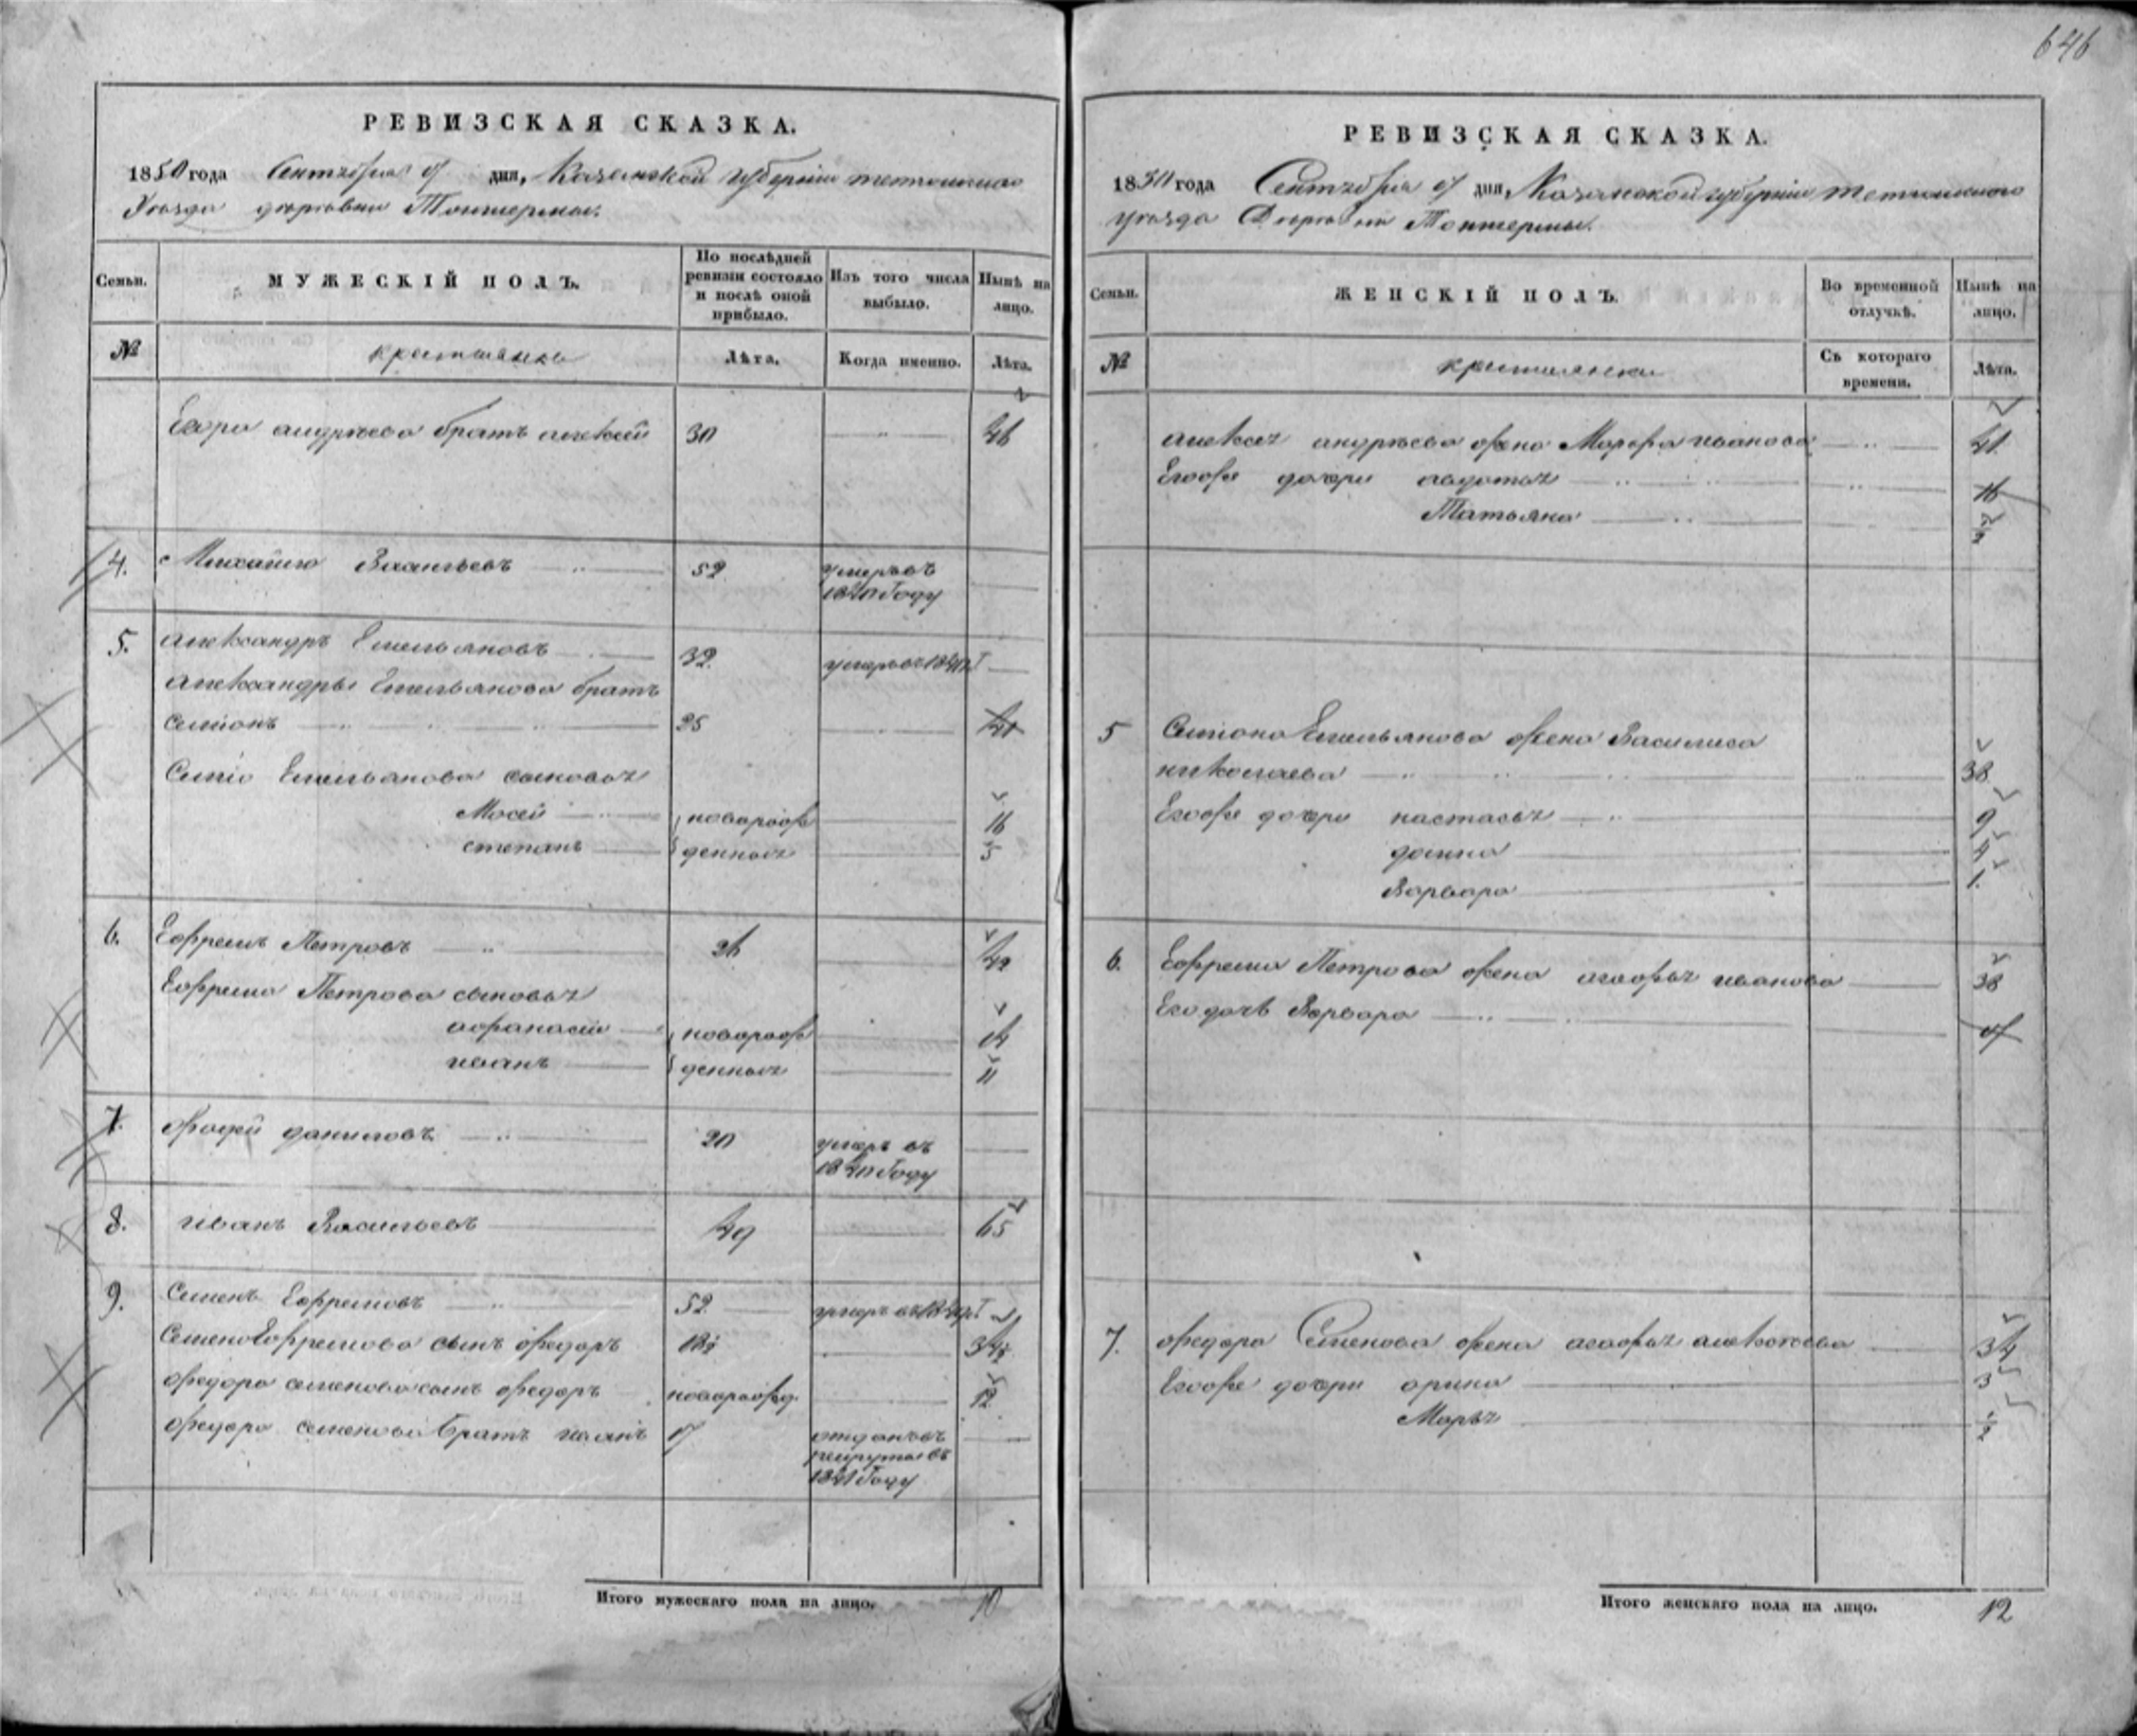 646
РЕВИЗСКАЯ СКАЗКА.
1850 года Сентября дня, Казанской губернии тетюшскаго
Уезда деревни
Семьи.
МУЖЕСКІЙ ПОЛЪ.
По послѣдней ревизіи состояло и послѣ оной прибыло.
Изъ того числа выбыло.
Нынѣ на лицо.
№
крестьяне
Лѣта.
Когда именно.
Лѣта.
Егора андреева братъ алексей 30 46
4. Михайло Васильевъ 52 умеръ въ
1840 Году
5. александръ Емельяновъ 32 умеръ въ
александры Емельянова братъ
Семіонъ 25 41
Семіо Емельянова сыновья
Мосей новорож 16
степанъ денныя 5
6. Ефремъ Петровъ 26 42
Ефрема Петрова сыновья
афанасій новорож 14
иванъ денныя 11
7. фадей даниловъ 20 умеръ въ
1840 Году
8. иванъ Васильевъ 49 65
9. Семенъ Ефремовъ 52 умеръ въ
Семена Ефремова сынъ федоръ 18½ 34½
федора семенова сынъ федоръ новорожд 12
федора семенова братъ иванъ отданъ въ
рекруты въ
1841 Году
Итого мужескаго пола на лицо. 10
РЕВИЗСКАЯ СКАЗКА.
1850 года Сентября дня, Казанской губерніи тетюшскаго
уезда Деревни
Семьи.
ЖЕНСКІЙ ПОЛЪ.
Во временной отлучкѣ.
Нынѣ на лицо.
№
крестьянки
Съ котораго времени.
Лѣта.
алексея андреева жена Марфа иванова 41
Егоже дочери авдотья 16
Татьяна ½
5 Семіона Емельянова жена Василиса
николаева 38
Егоже дочери настасья 9
домна 4
Варвара 1.
6. Ефрема Петрова жена агафья иванова 38
Его дочь Варвара
7. федора Семенова жена агафья алексеева 34
Егоже дочери орина 3
Марья ½
Итого женскаго пола на лицо. 12